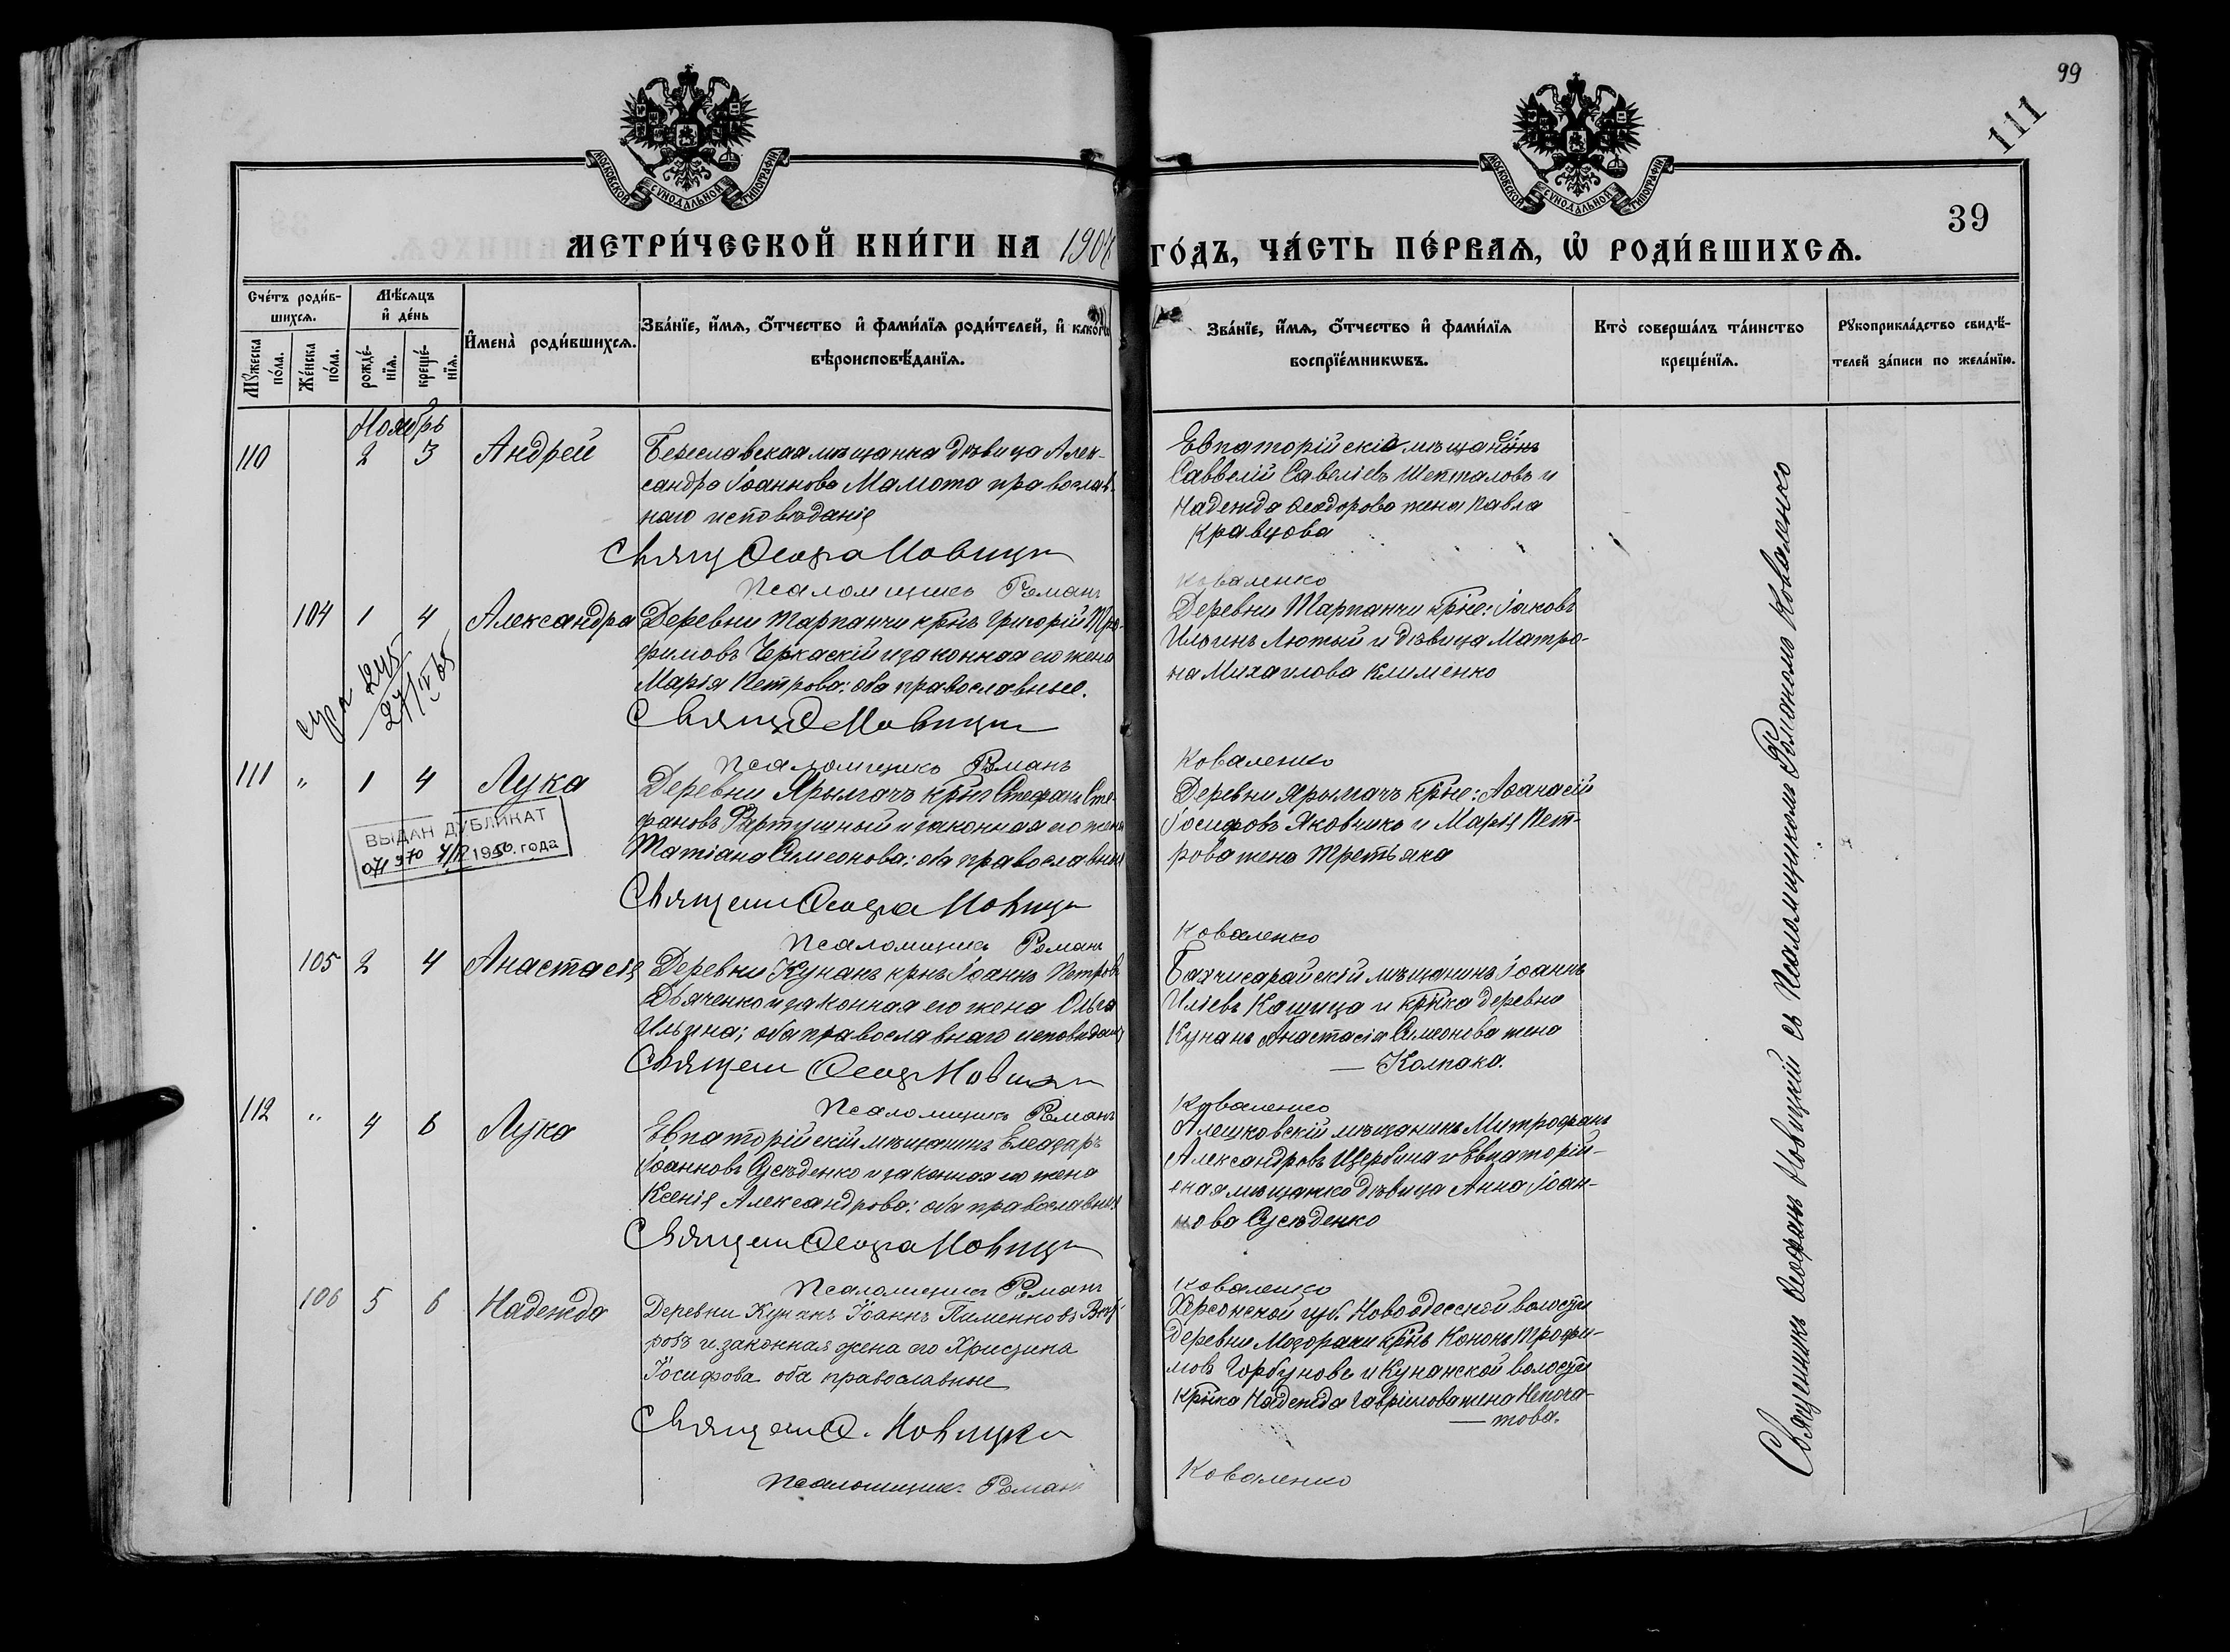 99
111
39
МОСКОВСКОЙ СУНОДАЛЬНОЙ ТИПОГРАФІИ
МОСКОВСКОЙ СУНОДАЛЬНОЙ ТИПОГРАФІИ
МЕТРИ́ЧЕСКОЙ КНИ́ГИ НА 1904 ГО́ДЪ, ЧА́СТЬ ПЕ́РВАѦ, Ѡ҆ РОДИ́ВШИХСѦ.
Сче́тъ роди́в-
шихсѧ.
Мѣ́сѧцъ
и҆ де́нь
Мꙋ́жеска по́ла.
Же́нска по́ла.
рожде́-нїѧ.
креще́-нїѧ.
И҆мена̀ роди́вшихсѧ.
Зва́нїе, и҆́мѧ, ѻ҆́тчество и҆ фами́лїѧ роди́телей, и҆ како́гѡ
вѣроисповѣ́данїѧ.
Зва́нїе, и҆́мѧ, ѻ҆́тчество и҆ фами́лїѧ
воспрїе́мникѡвъ.
Кто̀ соверша́лъ та́инство
креще́нїѧ.
Рꙋкоприкла́дство свидѣ́-
телей за́писи по жела́нїю.
Ноябрь
110 2 3 Андрей
Береславская мѣщанка дѣвица Алек-
сандра Іоаннова Мамота православ-
наго исповѣданія
Священ Ѳеофа Новицки
Псаломщикъ Романъ
Евпаторійскіе мѣщане
Савелій Савеліевъ Шепталовъ и
Надежда Ѳеодорова жена Павла
Кравцова
Коваленко
104 1 4 Александра
Деревни Тарпанчи крнъ Григорій Тро-
фимовъ Черкаскій и законная его жена
Марія Петрова; оба православные.
Священ Ѳ Новицки
Псаломщикъ Романъ
Деревни Тарпанчи крне: Іаковъ
Ильинъ Лютый и дѣвица Матро-
на Михаилова Клименко
Коваленко
245
27/IV 65
111 " 1 4 Лука
Деревни Ярылгачъ крнъ Стефанъ Сте-
фановъ Фартушный и законная его жена
Татіана Симеонова; оба православные
Священ Ѳеофа Новицки
Псаломщикъ Романъ
Деревни Ярылгачъ крне: Аѳанасій
Іосифовъ Яковчико и Марія Пет-
рова жена Третьяка
Коваленко
ВЫДАН ДУБЛИКАТ
1950 года
105 2 4 Анастасія
Деревни Кунанъ крнъ Іоаннъ Петровъ
Дьяченко и законная его жена Ольга
Ильина; оба православнаго исповѣданія
Священ Ѳеоф Новицки
Псаломщикъ Романъ
Бахчисарайскій мѣщанинъ Іоаннъ
Иліевъ Кашица и крнка деревни
Кунанъ Анастасія Симеонова жена
— Колпака.
Коваленко
112 " 4 6 Лука
Евпаторійскій мѣщанинъ Елеазаръ
Іоанновъ Сусѣденко и законная его жена
Ксенія Александрова; оба православные
Священ Ѳеофа Новицки
Псаломщикъ Романъ
Алешковскій мѣщанинъ Митрофанъ
Александровъ Щербина и Евпаторій-
ская мѣщанка дѣвица Анна Іоан-
нова Сусѣденко
Коваленко
106 5 6 Надежда
Деревни Кунанъ Іоаннъ Пименновъ
и законная жена его Христина
Іосифова оба православные
Священ Ѳ. Новицки
Псаломщикъ Романъ
Херсонской губ. Новоодесской волости
деревни крнъ Кононъ Трофи-
мовъ Горбуновъ и Кунанской волости
крнка Надежда Гавріилова жена Непога-
— това.
Коваленко
Священникъ Ѳеофанъ Новицкій съ Псаломщикомъ Романомъ Коваленко